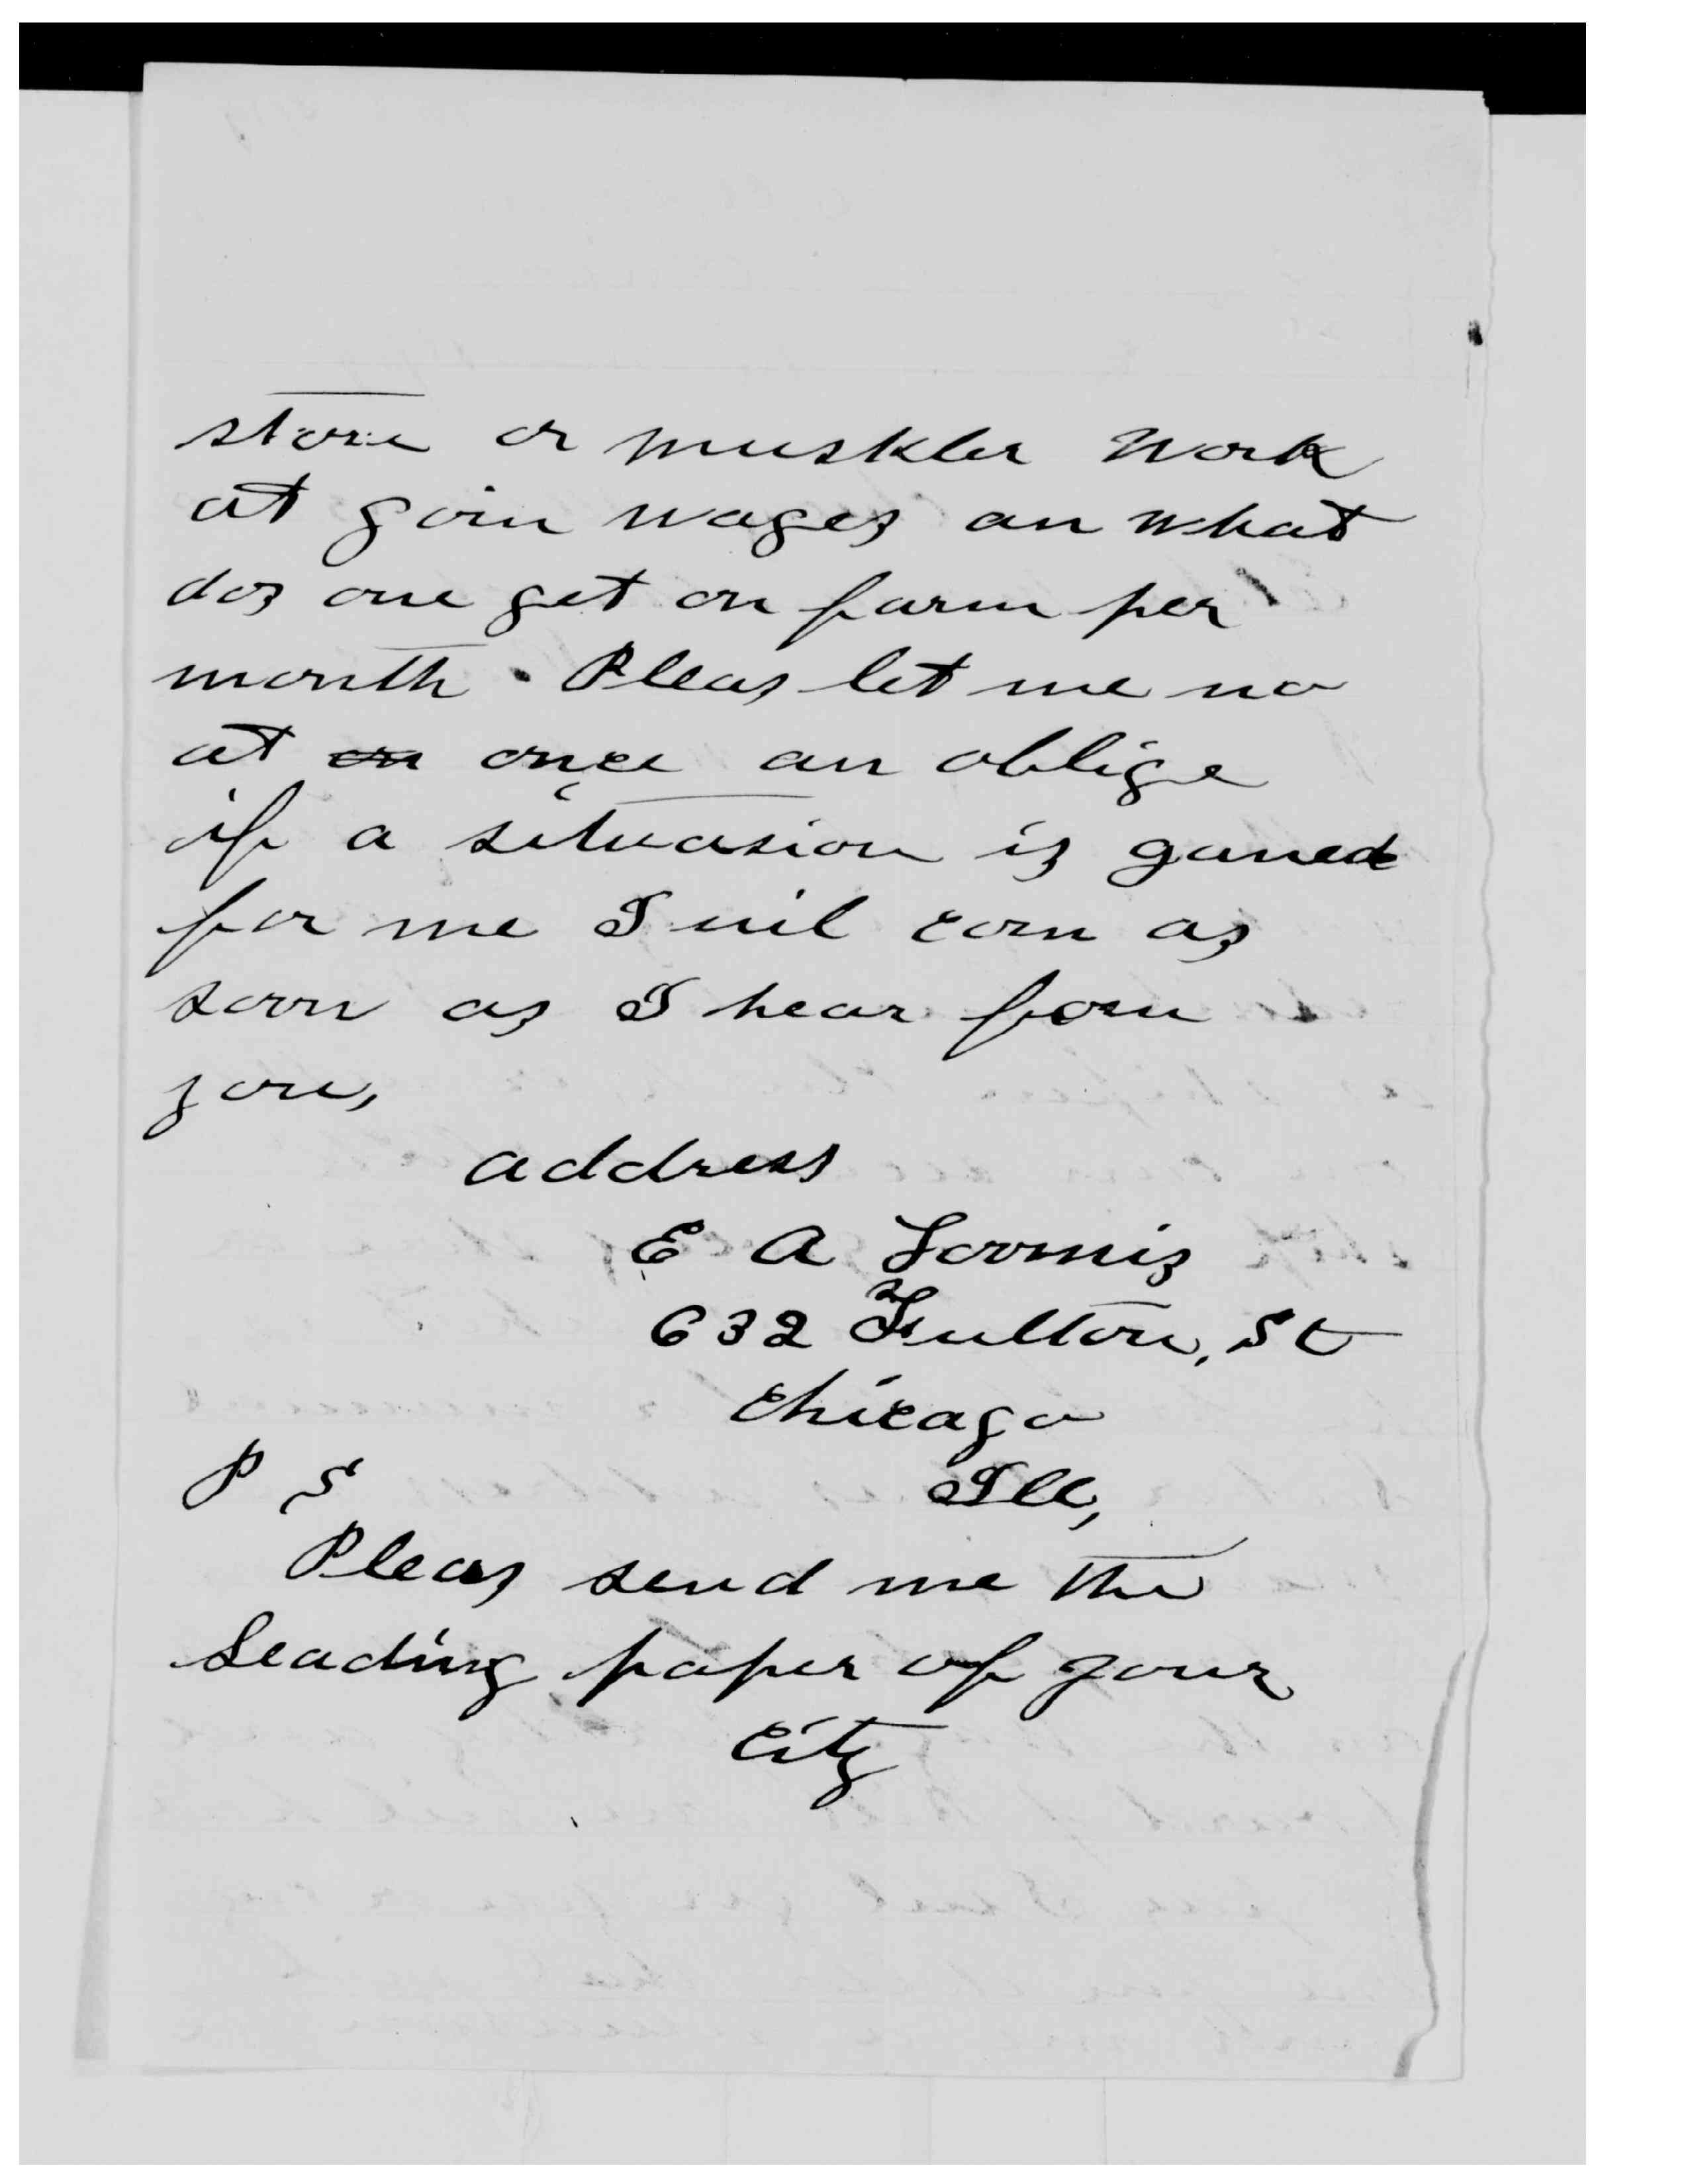 store or muskler work
at goin wages an what
dos one get on farm per
month. Pleas let me no
at on once an oblige
if a situasion is ganed
for me I wil com as
soon as I hear from
you,
address
E A Loomis
632 Fulton, St
Chicago
P S Ill,
Pleas send me the
Leading paper of your
City